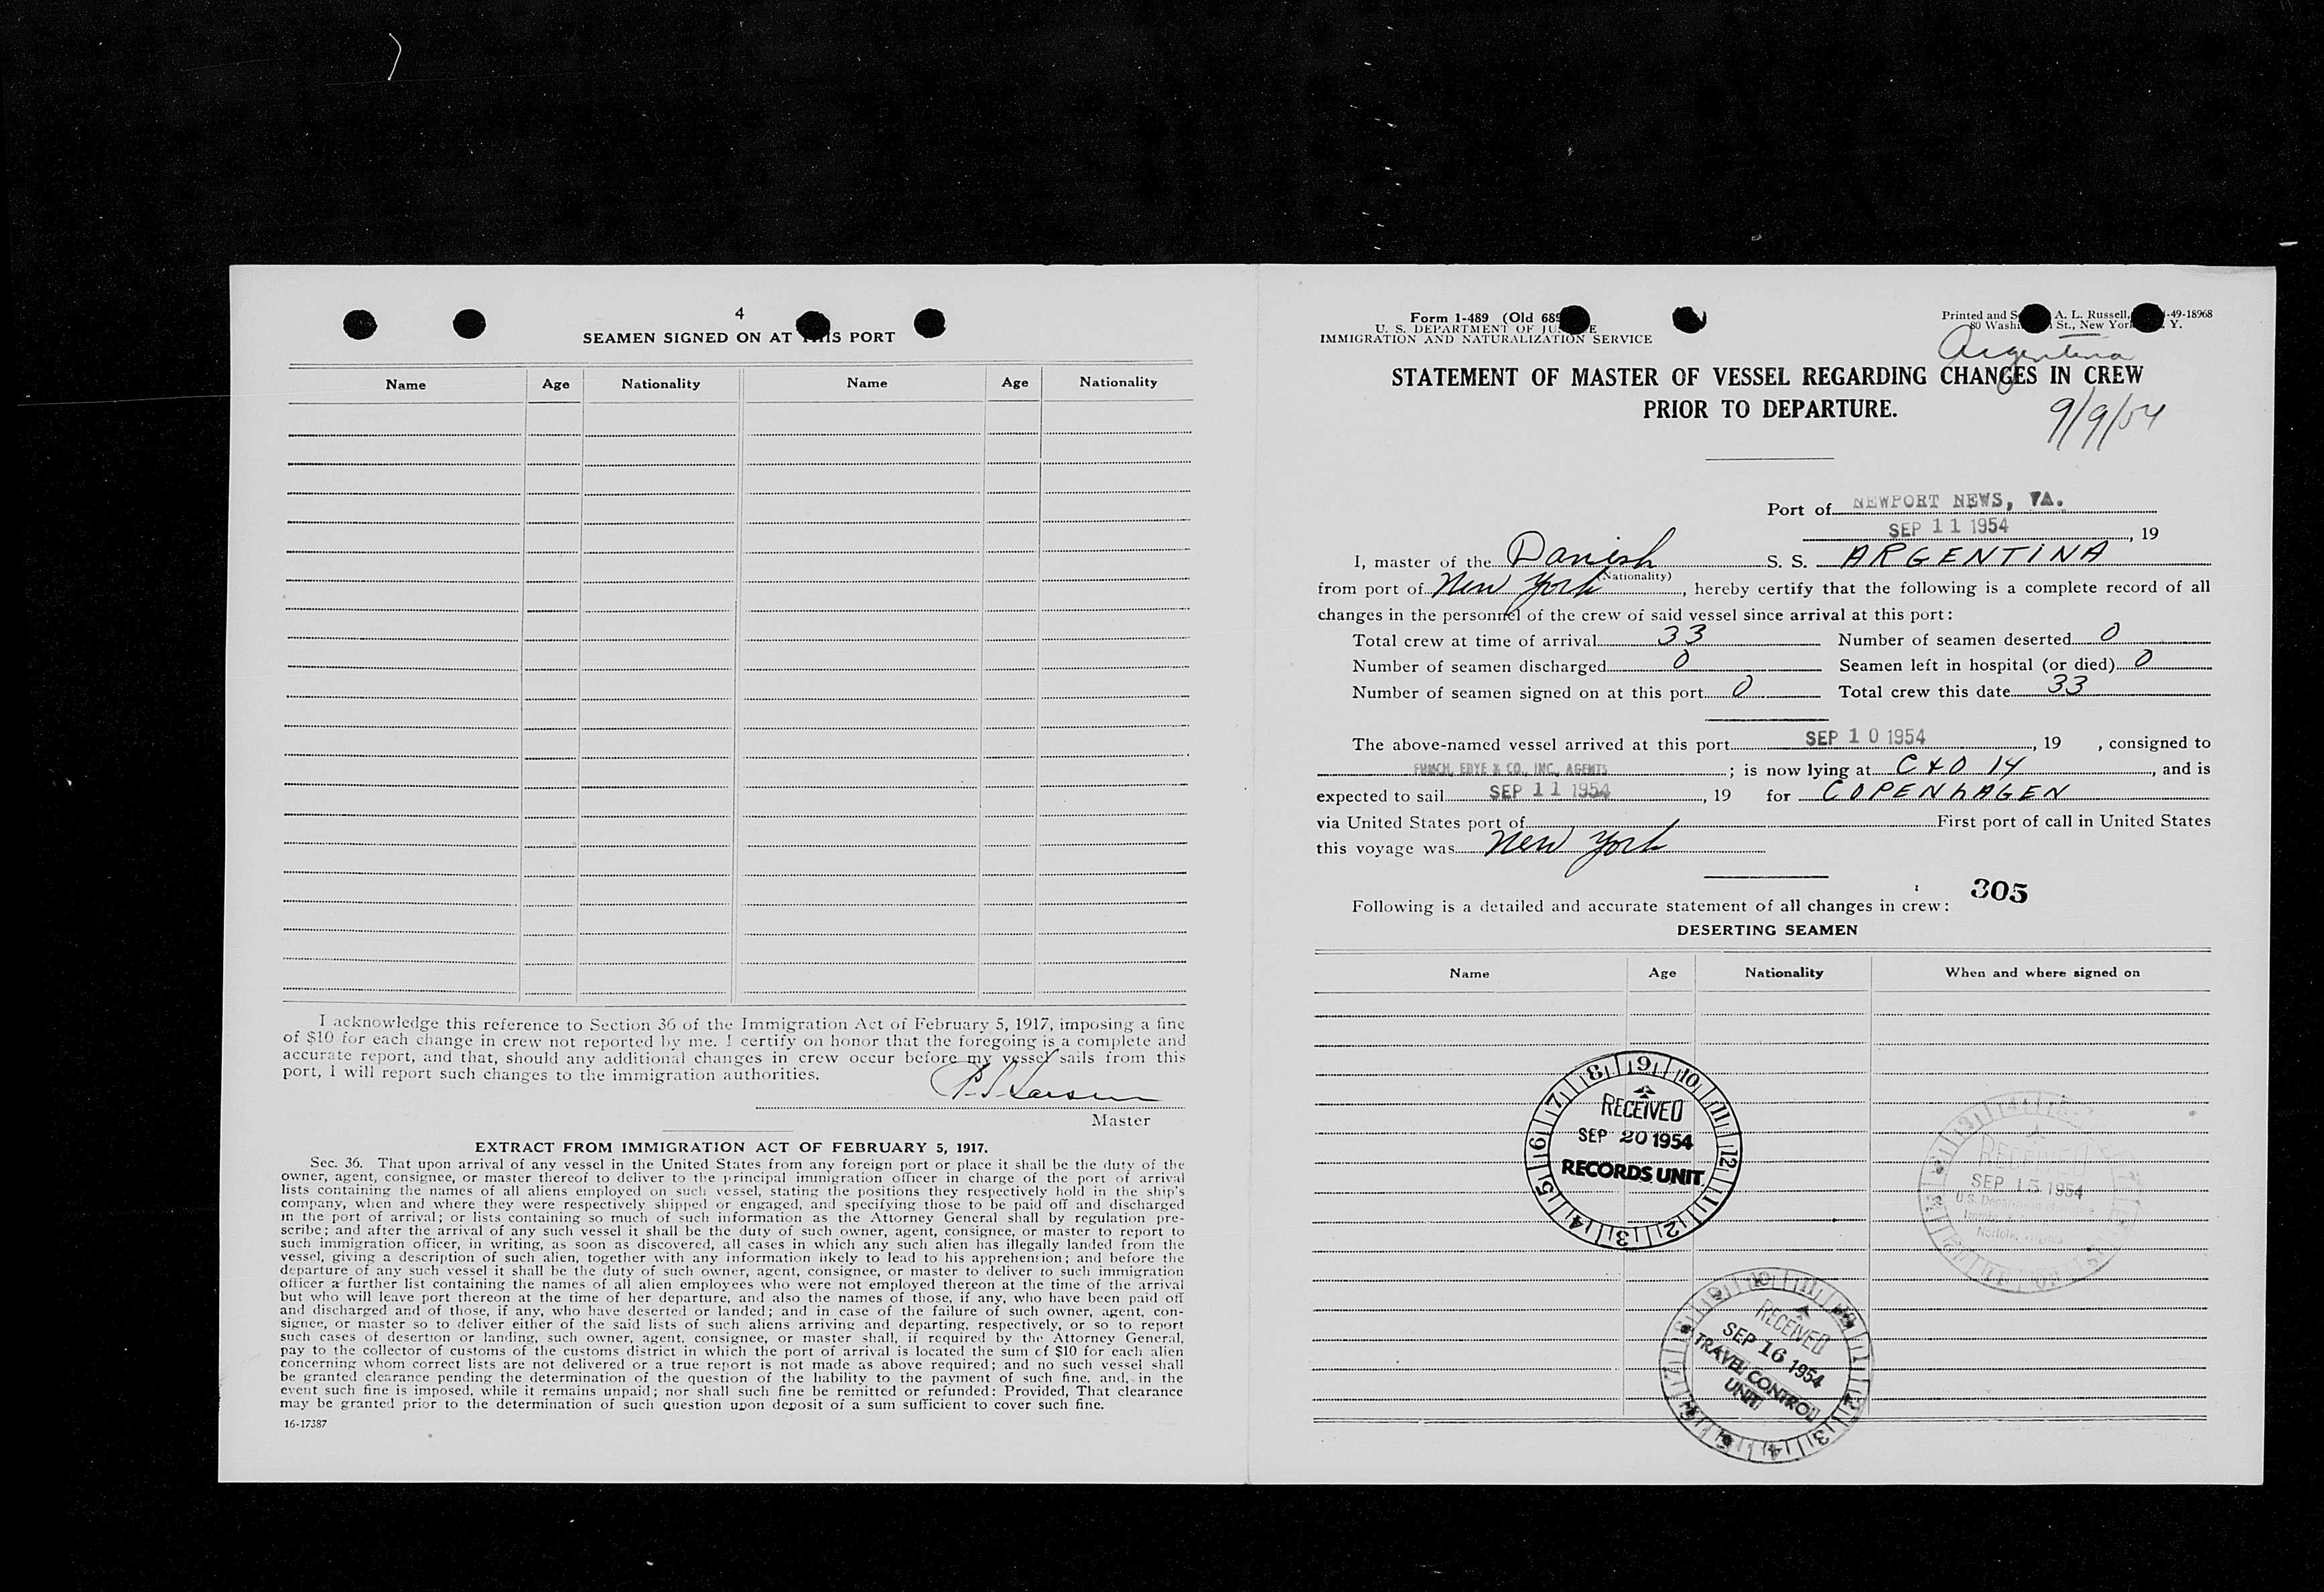 4
SEAMEN SIGNED ON AT THIS PORT
Name Age Nationality Name Age Nationality
I acknowledge this reference to Section 36 of the Immigration Act of February 5, 1917, imposing a fine
of $10 for each change in crew not reported by me. I certify on honor that the foregoing is a complete and
accurate report, and that, should any additional changes in crew occur before my vessel sails from this
port, I will report such changes to the immigration authorities.
Larsen
Master
EXTRACT FROM IMMIGRATION ACT OF FEBRUARY 5, 1917.
Sec. 36. That upon arrival of any vessel in the United States from any foreign port or place it shall be the duty of the
owner, agent, consignee, or master thereof to deliver to the principal immigration officer in charge of the port of arrival
lists containing the names of all aliens employed on such vessel, stating the positions they respectively hold in the ship's
company, when and where they were respectively shipped or engaged, and specifying those to be paid off and discharged
in the port of arrival; or lists containing so much of such information as the Attorney General shall by regulation pre-
scribe; and after the arrival of any such vessel it shall be the duty of such owner, agent, consignee, or master to report to
such immigration officer, in writing, as soon as discovered, all cases in which any such alien has illegally landed from the
vessel, giving a description of such alien, together with any information likely to lead to his apprehension; and before the
departure of any such vessel it shall be the duty of such owner, agent, consignee, or master to deliver to such immigration
officer a further list containing the names of all alien employees who were not employed thereon at the time of the arrival
but who will leave port thereon at the time of her departure, and also the names of those, if any, who have been paid off
and discharged and of those, if any, who have deserted or landed; and in case of the failure of such owner, agent, con-
signee, or master so to deliver either of the said lists of such aliens arriving and departing, respectively, or so to report
such cases of desertion or landing, such owner, agent, consignee, or master shall, if required by the Attorney General,
pay to the collector of customs of the customs district in which the port of arrival is located the sum of $10 for each alien
concerning whom correct lists are not delivered or a true report is not made as above required; and no such vessel shall
be granted clearance pending the determination of the question of the liability to the payment of such fine, and, in the
event such fine is imposed, while it remains unpaid; nor shall such fine be remitted or refunded: Provided, That clearance
may be granted prior to the determination of such question upon deposit of a sum sufficient to cover such fine.
16-17387
Form 1-489 (Old 689
U. S. DEPARTMENT OF JUSTICE
IMMIGRATION AND NATURALIZATION SERVICE
Printed and S A. L. Russell, -49-18968
80 Washi St., New York Y.
Argentina
STATEMENT OF MASTER OF VESSEL REGARDING CHANGES IN CREW
PRIOR TO DEPARTURE.
9/9/54
Port of NEWPORT NEWS, VA.
SEP 11 1954, 19
I, master of the Danish S. S. ARGENTINA
(Nationality)
from port of New York, hereby certify that the following is a complete record of all
changes in the personnel of the crew of said vessel since arrival at this port:
Total crew at time of arrival 33 Number of seamen deserted 0
Number of seamen discharged 0 Seamen left in hospital (or died) 0
Number of seamen signed on at this port 0 Total crew this date 33
The above-named vessel arrived at this port SEP 10 1954, 19 , consigned to
FUNCH, EDYE & CO., INC., AGENTS; is now lying at C+O 14, and is
expected to sail SEP 11 1954, 19 for COPENHAGEN
via United States port of First port of call in United States
this voyage was New York
305
Following is a detailed and accurate statement of all changes in crew:
DESERTING SEAMEN
Name Age Nationality When and where signed on
RECEIVED
SEP 20 1954
RECORDS UNIT
RECEIVED
SEP 15 1954
U.S. Department of Justice
Norfolk, Virginia
RECEIVED
SEP 16 1954
TRAVEL CONTROL
UNIT